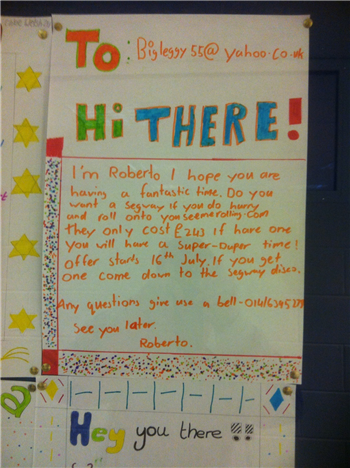 To: Bigleggy55@yahoo.co.uk
Hi THERE!
I'm Roberto I hope you are
having a fantastic time. Do you
want a segway if you do hurry
and roll onto youseemerolling.com
They only cost £243 if have one
you will have a super-duper time!
Offer starts 16th July. If you get
one come down to the segway disco.
Any questions give use a bell-
See you later.
Roberto.
Hey you there !!